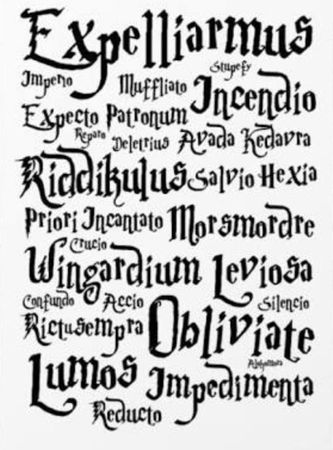 Expelliarmus
Stupefy
Imperio Muffliato Incendio
Expecto Patronum
Reparo Deletrius Avada Kedavra
Riddikulus Salvio Hexia
Priori Incantato Morsmordre
Crucio
Wingardium Leviosa
Confundo Accio Silencio
Rictusempra Obliviate
Lumos Impedimenta
Reducto